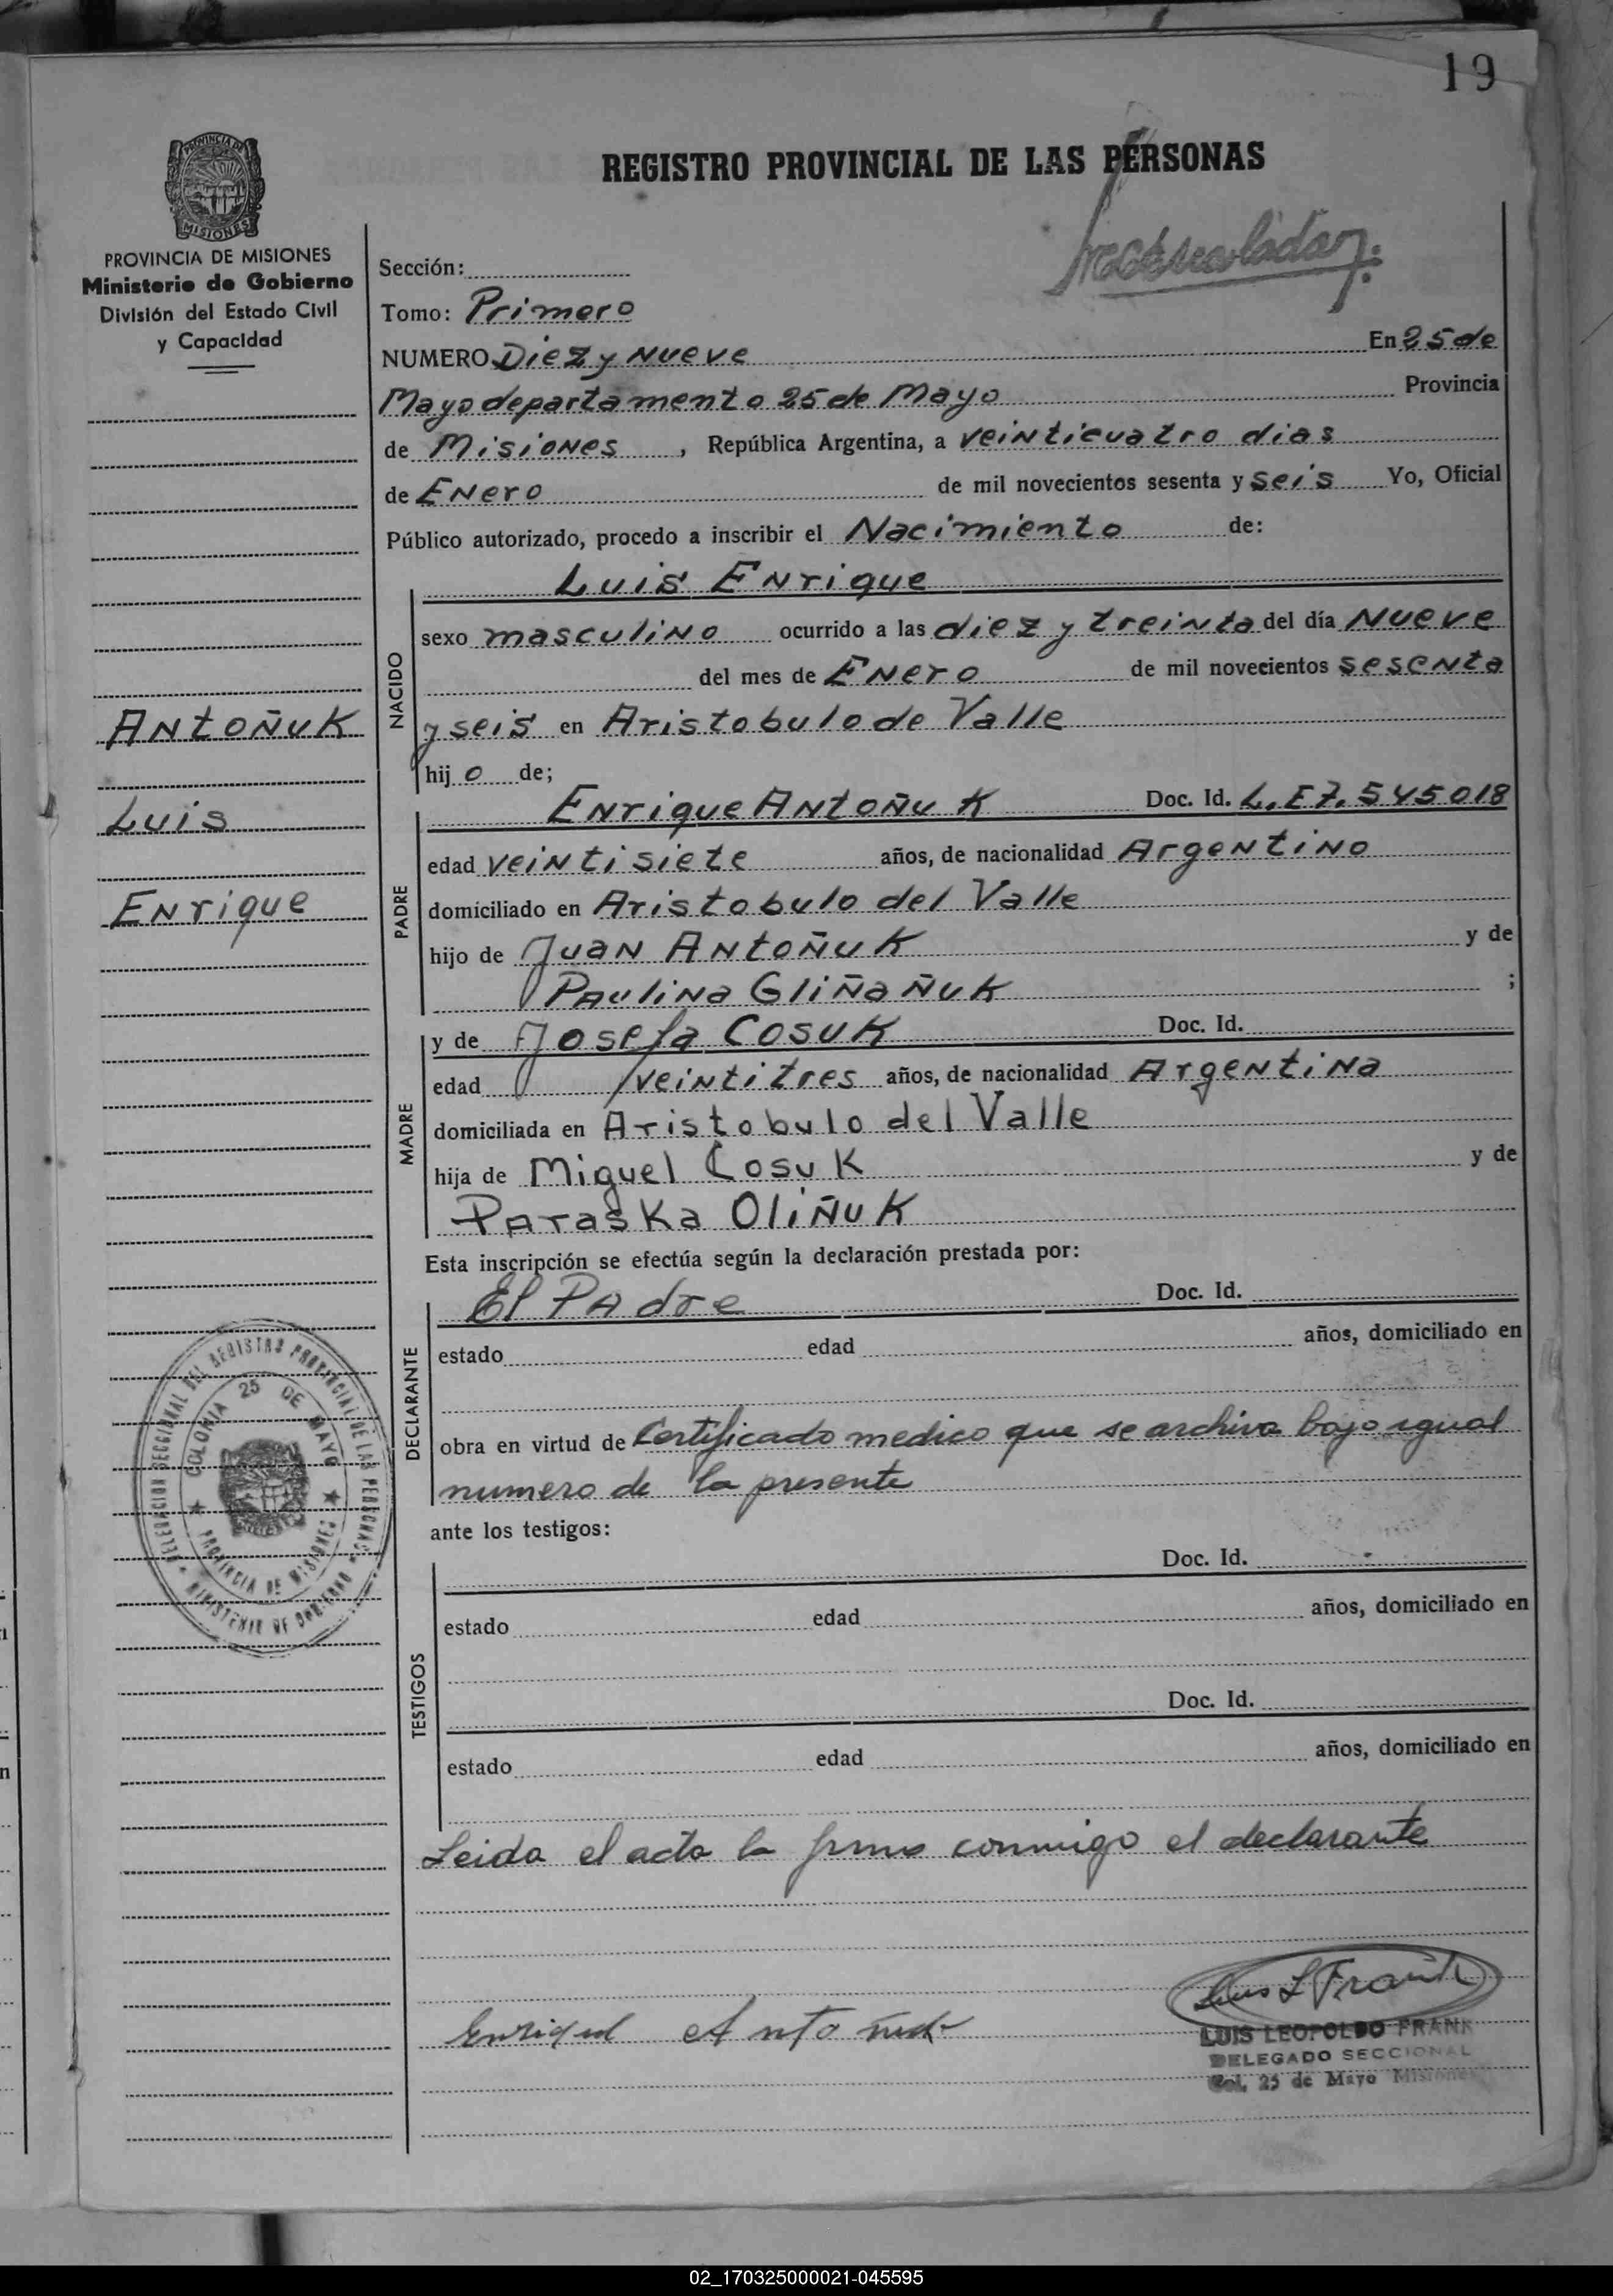 19
REGISTRO PROVINCIAL DE LAS PERSONAS
PROVINCIA DE MISIONES
Ministerio de Gobierno
División del Estado Civil
y Capacidad
ANtoÑuK
Luis
ENrique
Sección:
Tomo: Primero
NUMERO Diez y Nueve En 25 de
Mayo departamento 25 de Mayo Provincia
de Misiones, República Argentina, a veinticuatro dias
de Enero de mil novecientos sesenta y seis Yo, Oficial
Público autorizado, procedo a inscribir el Nacimiento de:
Luis Enrique
NACIDO
sexo masculino ocurrido a las diez y treinta del día Nueve
del mes de Enero de mil novecientos sesenta
y seis en Aristobulo de Valle
hijo de;
PADRE
Enrique Antoñuk Doc. Id. L.E 7.545018
edad veintisiete años, de nacionalidad Argentino
domiciliado en Aristobulo del Valle
hijo de Juan Antoñuk y de
Paulina Gliñañuk ;
MADRE
y de Josefa Cosuk Doc. Id.
edad veintitres años, de nacionalidad Argentina
domiciliada en Aristobulo del Valle
hija de Miguel Cosuk y de
Paraska Oliñuk
Esta inscripción se efectúa según la declaración prestada por:
DECLARANTE
El Padre Doc. Id.
estado edad años, domiciliado en
obra en virtud de Certificado medico que se archiva bajo igual
numero de la presente
ante los testigos:
TESTIGOS
Doc. Id.
estado edad años, domiciliado en
Doc. Id.
estado edad años, domiciliado en
Leida el acta la firma conmigo el declarante
DELEGACION SECCIONAL DEL REGISTRO PROVINCIAL DE LAS PERSONAS
MINISTERIO DE GOBIERNO
COLONIA 25 DE MAYO
PROVINCIA DE MISIONES
Luis L Frank
LUIS LEOPOLDO FRANK
DELEGADO SECCIONAL
Col. 25 de Mayo Misiones
02_170325000021-045595